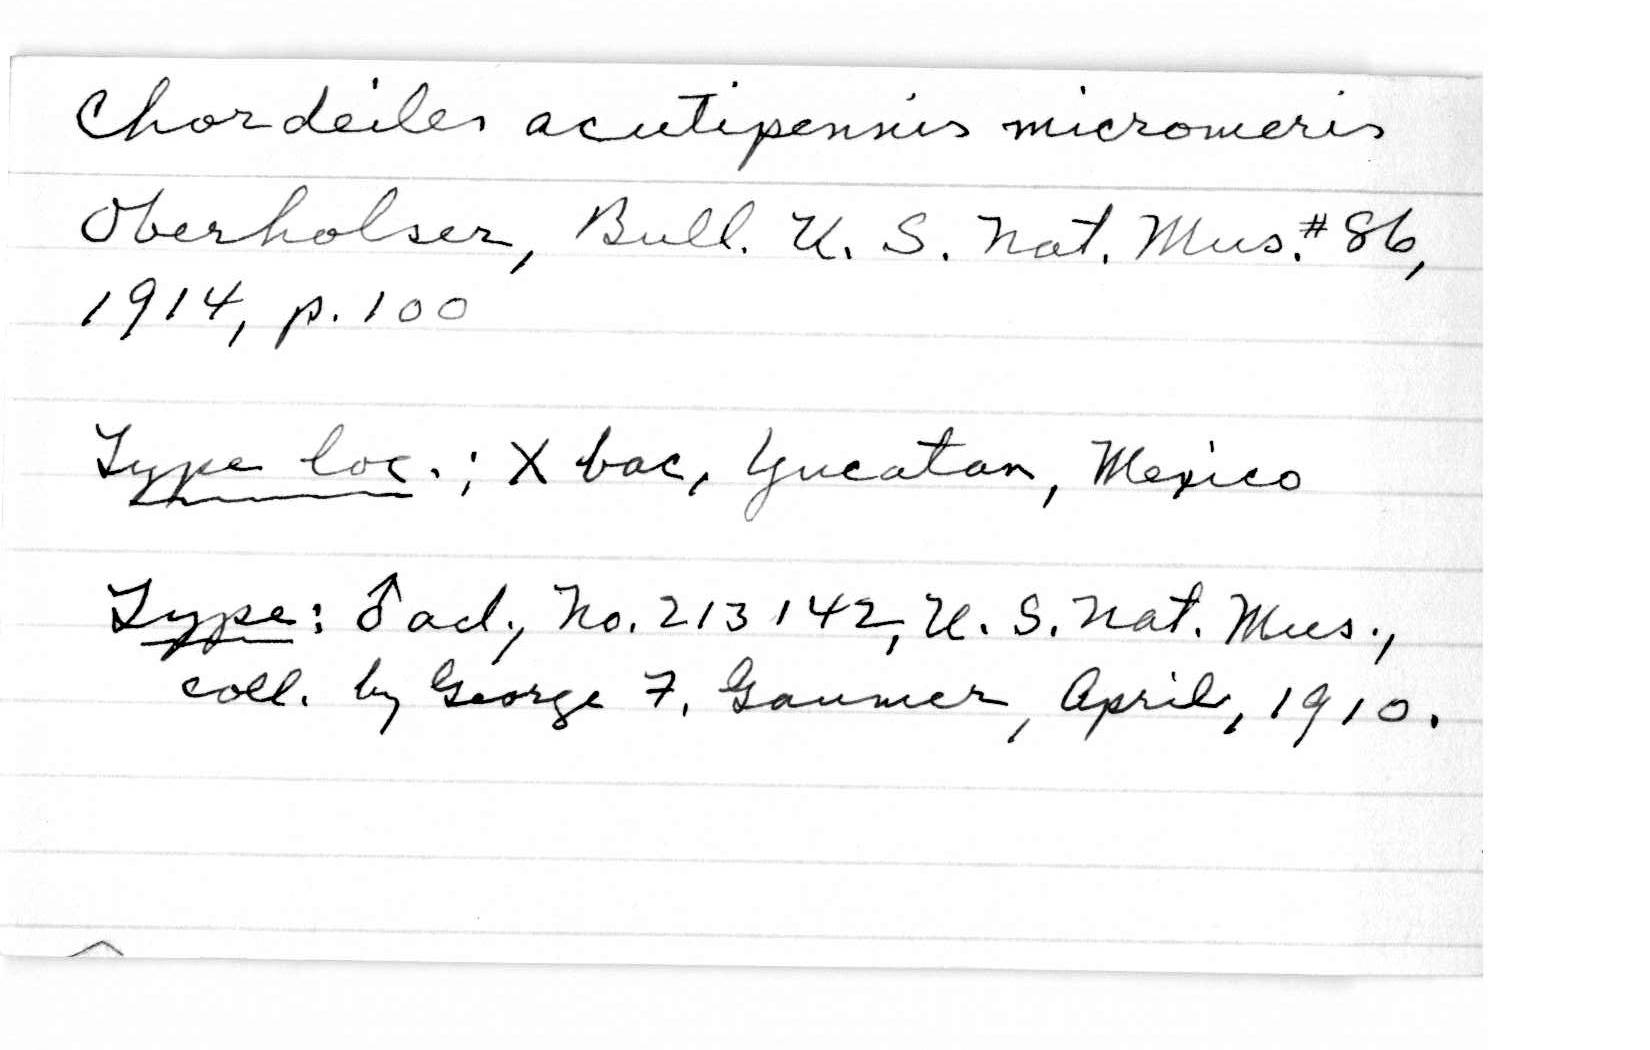 Chordeiles acutipennis micromeris
Oberholser, Bull. U. S. Nat. Mus. #86,
1914, p. 100
Type loc.; Xbac, Yucatan, Mexico
Type: ♂ ad., No. 213142, U. S. Nat. Mus.,
coll. by George F. Gaumer, April, 1910.